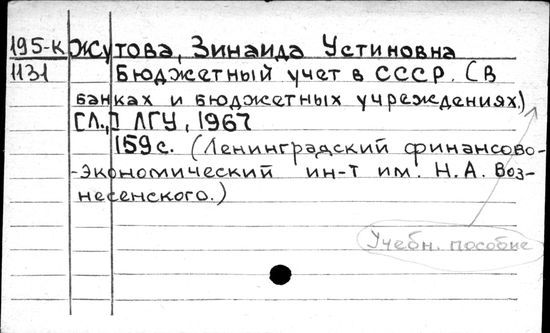 195-к Жутова, Зинаида Устиновна
1131 Бюджетный учет в СССР. (В
банках и бюджетных учреждениях.)
[Л.,] ЛГУ, 1967
159с. (Ленинградский финансово-
-экономический ин-т им. Н.А. Воз-
несенского.)
Учебн. пособие